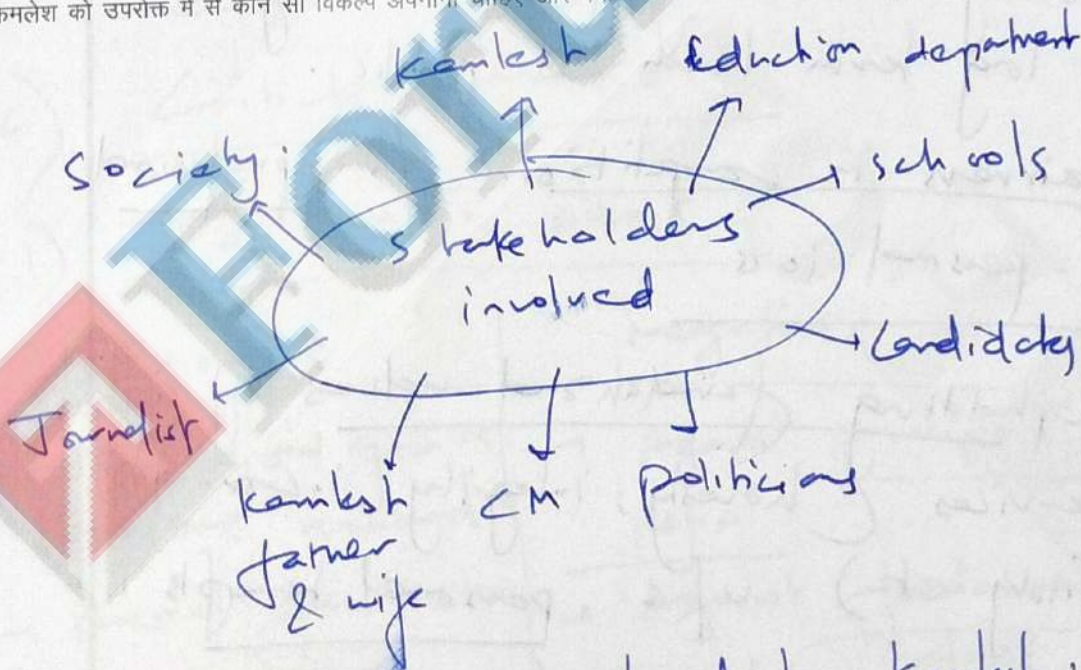 कमलेश को उपरोक्त में से कौन सा विकल्प अपनाना चाहिए और
Kamlesh
Eduction depatment
Society
schools
stakeholders
involved
Candidates
Journalist
Kamlesh
father
& wife
CM
politicians